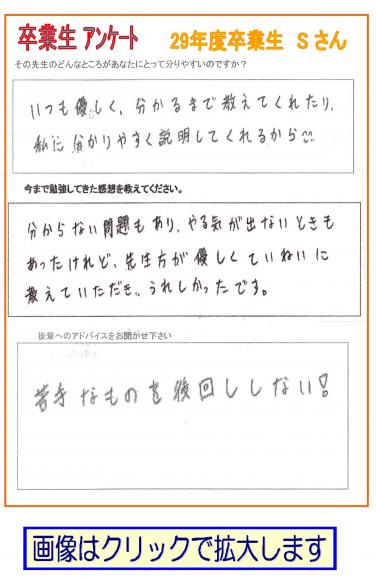 卒業生 アンケート 29年度卒業生 Sさん
その先生のどんなところがあなたにとって分りやすいのですか？
いつも優しく、分かるまで教えてくれたり、
私に分かりやすく説明してくれるから
今まで勉強してきた感想を教えてください。
分からない問題もあり、やる気が出ないときも
あったけれど、先生方が優しくていねいに
教えていただき、うれしかったです。
後輩へのアドバイスをお聞かせ下さい
苦手なものを後回ししない!
画像はクリックで拡大します